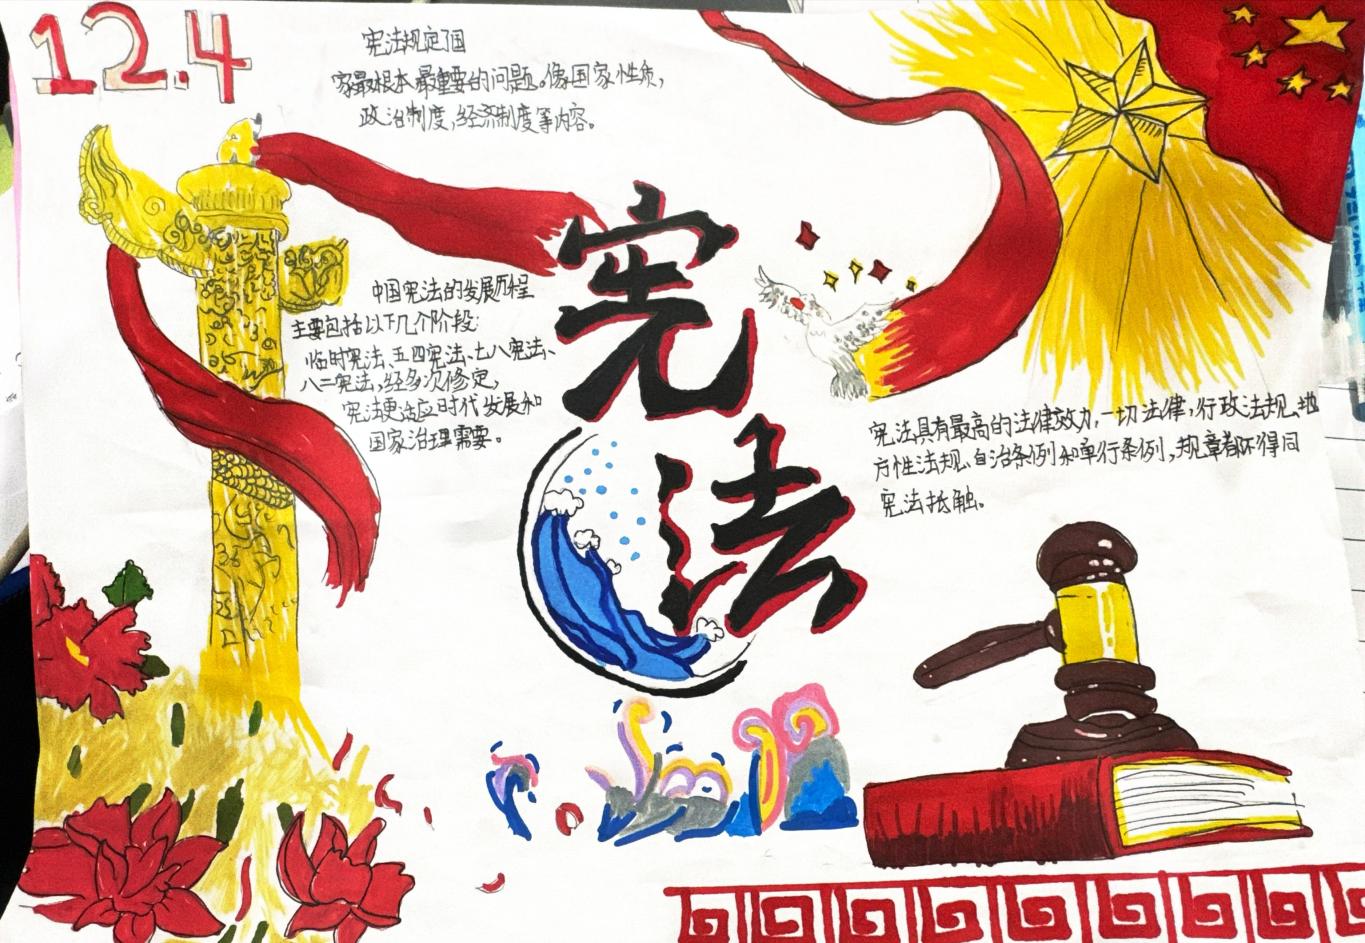 12.4
宪法规定了国
家最根本最重要的问题。像国家性质,
政治制度,经济制度等内容。
宪法
中国宪法的发展历程
主要包括以下几个阶段:
临时宪法、五四宪法、七八宪法、
八二宪法,经多次修定,
宪法更适应时代发展和
国家治理需要。
宪法具有最高的法律效力,一切法律,行政法规、地
方性法规、自治条例和单行条例,规章都不得同
宪法抵触。